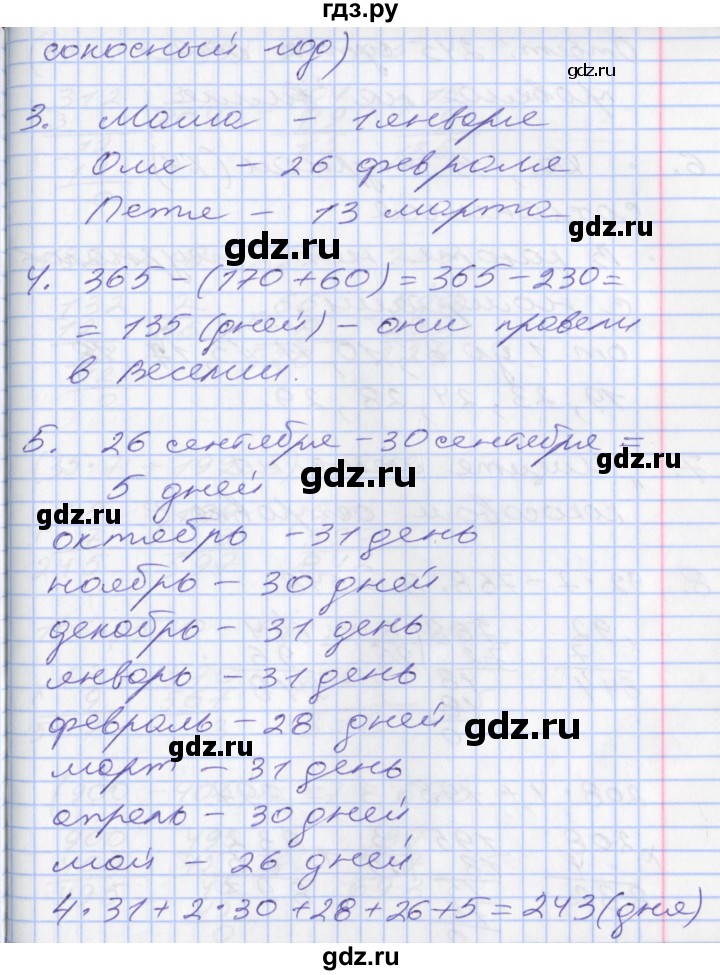 гдз.ру
сокосный год)
gdz.ru
3. Маша – 1 января
Оля – 26 февраля
Петя – 13 марта
gdz.ru
gdz.ru
4. 365 – (170 + 60) = 365 – 230 =
= 135 (дней) – они провели
в Весели.
5. 26 сентября – 30 сентября =
gdz.ru
gdz.ru
5 дней
gdz.ru
октябрь – 31 день
ноябрь – 30 дней
декабрь – 31 день
январь – 31 день
февраль – 28 дней
gdz.ru
gdz.ru
март – 31 день
апрель – 30 дней
май – 26 дней
gdz.ru
4 · 31 + 2 · 30 + 28 + 26 + 5 = 243 (дня)
gdz.ru